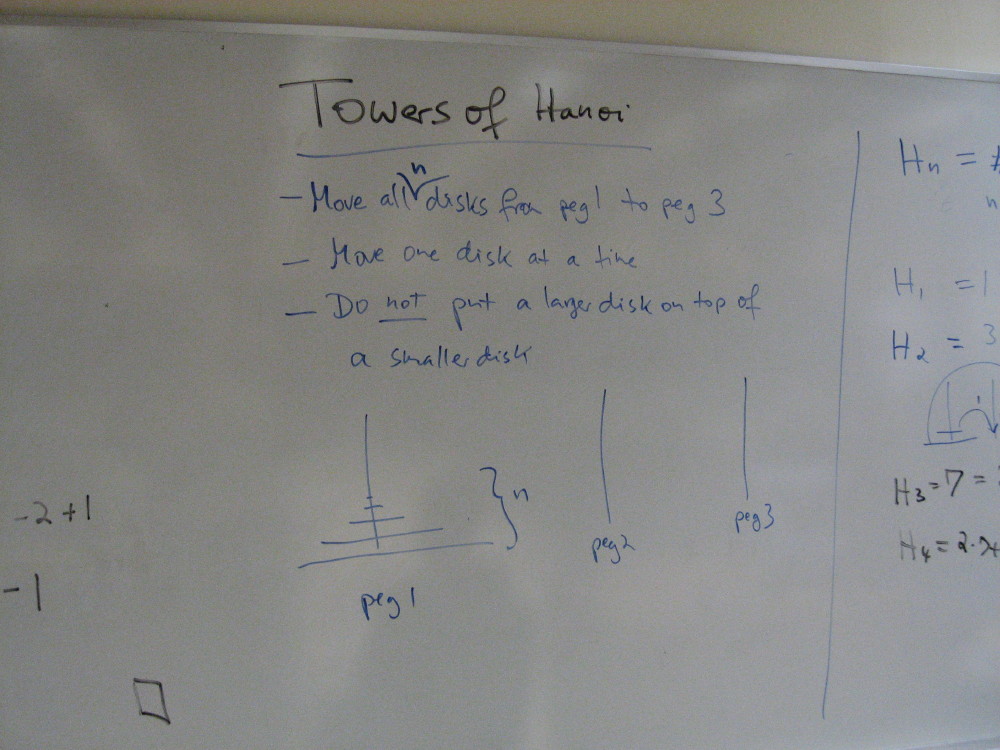 Towers of Hanoi
- Move all n disks from peg 1 to peg 3
- Move one disk at a time
- Do not put a larger disk on top of
a smaller disk
n
peg 1
peg 2
peg 3
-2+1
-1
Hn = #
n
H1 = 1
H2 = 3
H3 = 7 =
H4 = 2·7+